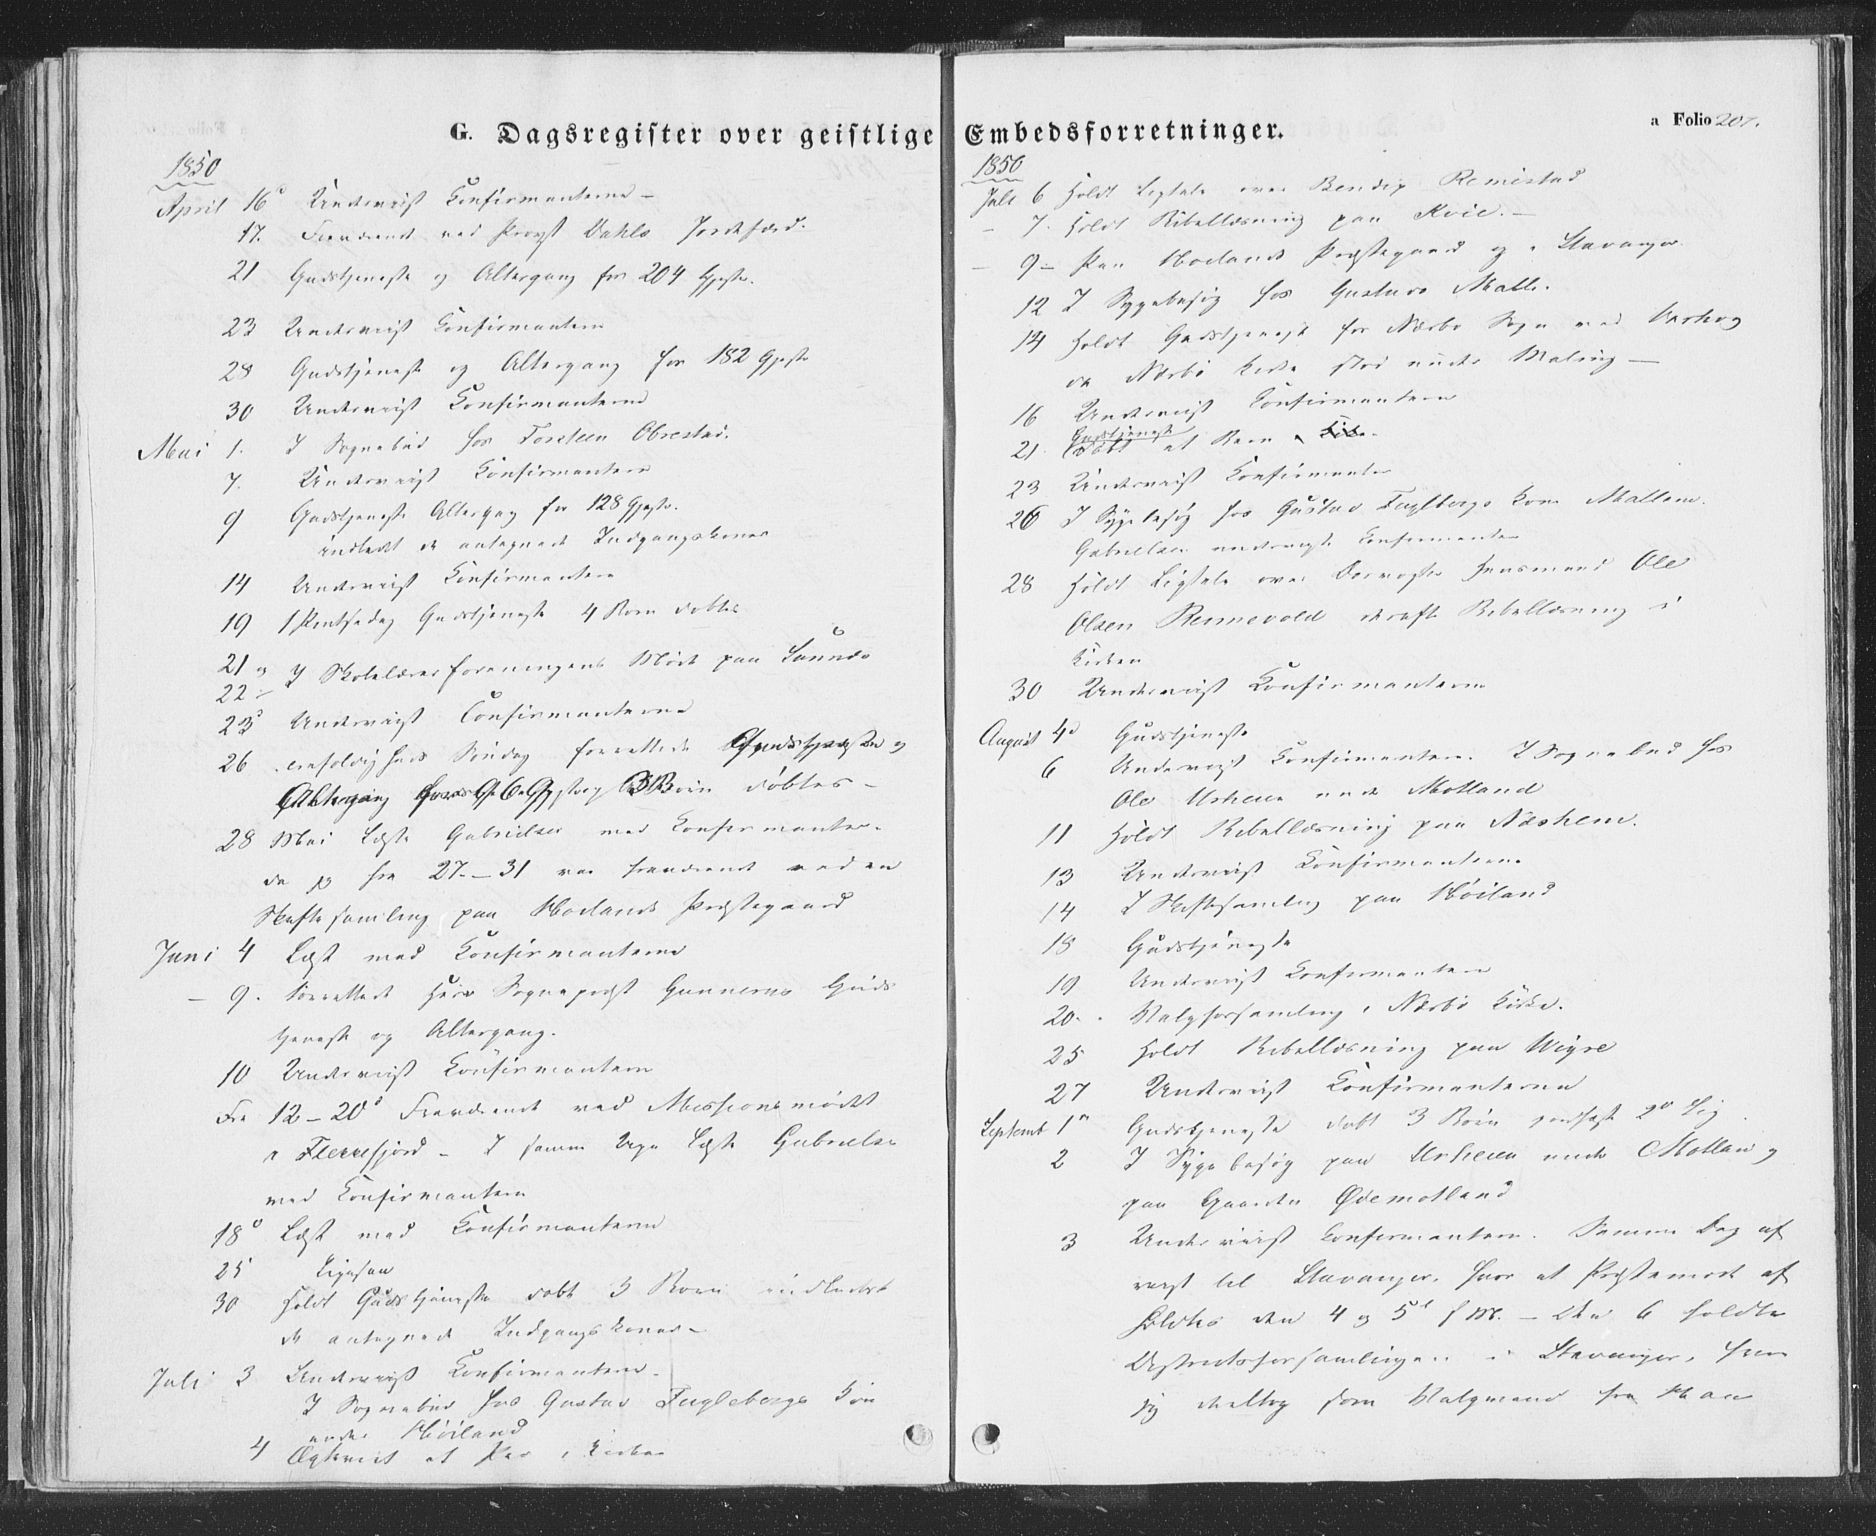 G. Dagsregister over geistlige Embedsforretninger.
a Folio 207.
1850
April 16d Underviist Confirmanterne –
17. Fraværende ved Provst Dahls Jordefærd.
21 Gudstjeneste og Altergang for 204 Gjester.
23 Underviist Confirmanterne
28 Gudstjeneste og Altergang for 182 Gjester
30 Underviist Confirmanterne
Mai 1. I Sognebud hos Torsteen Obrestad.
7. Underviist Confirmanterne
9 Gudstjeneste Altergang for 128 Gjester.
indledt de antegnede Indgangskoner
14 Underviist Confirmanterne
19 1 Pintsedag Gudstjeneste 4 Børn døbtes
21 og I Skolelærerforeningens Møde paa
22
23d Underviist Confirmanterne
26 Søndag forrettede Gudstjeneste og
Altergang Børn døbtes –
28 Mai læste Gabrielsen med Confirmanter
da jeg fra 27 – 31 var fraværende ved en
Skiftesamling paa Høilands Præstegaard
Juni 4 Læst med Confirmanterne
– 9. Forrettede Herr Sognepræst Gunnerus Guds
tjeneste og Altergang.
10 Underviist Confirmanterne
Fra 12 – 20d Fraværende ved Missionsmødet
i Flekkefjord – I samme Uge læste Gabrielsen
med Confirmanterne
18d Læst med Confirmanterne
25 Ligesaa
30 Holdt Gudstjeneste døbt 3 Børn indledet
de antegnede Indgangskoner –
Juli 3 Underviist Confirmanterne.
I Sognebud hos Gustav Fuglebergs Kone
under Høiland
4 Ægteviet et Par i Kirken
1850
Juli 6 Holdt Ligtale over Rimestad
– 7. Holdt Bibellæsning paa Kvie. –
– 9 – Paa Høilands Præstegaard og i Stavanger.
12 I Sygebesøg hos Gustavs
14 Holdt Gudstjeneste for Nærbø Sogn ved Varhoug
da Nærbø Kirke stod under Maling –
16 Underviist Confirmanterne
Gudstjeneste
21 døbt et Barn
23 Underviist Confirmanter
26 I Sygebesøg hos Gustav Fuglbergs Kone
Gabrielsen underviste Confirmanter
28 Holdt Ligtale over Huusmand Ole
Olsen derefter Bibellæsning i
Kirken
30 Underviist Confirmanterne
August 4d Gudstjeneste
6 Underviist Confirmanterne. I Sognebud hos
Ole Urheien under Motland
11 Holdt Bibellæsning paa Næsheim.
13 Underviist Confirmanterne
14 I Skiftesamling paa Høiland
18 Gudstjeneste
19 Underviist Confirmanterne
20. Valgforsamling i Nærbø Kirke.
25 Holdt Bibellæsning paa Wigre
27 Underviist Confirmanterne
Septemb 1n Gudstjeneste døbt 3 Børn jordfæstet 2d Lig
2 I Sygebesøg paa Urheien under Motland og
paa Gaarden Ødemotland
3 Underviist Confirmanterne. Samme Dag af
reist til Stavanger, hvor et Præstemøde af
holdtes den 4 og 5te f M. – Den 6 holdtes
Districtsforsamlingen i Stavanger, hvor
jeg deeltog som Valgmand fra Haae